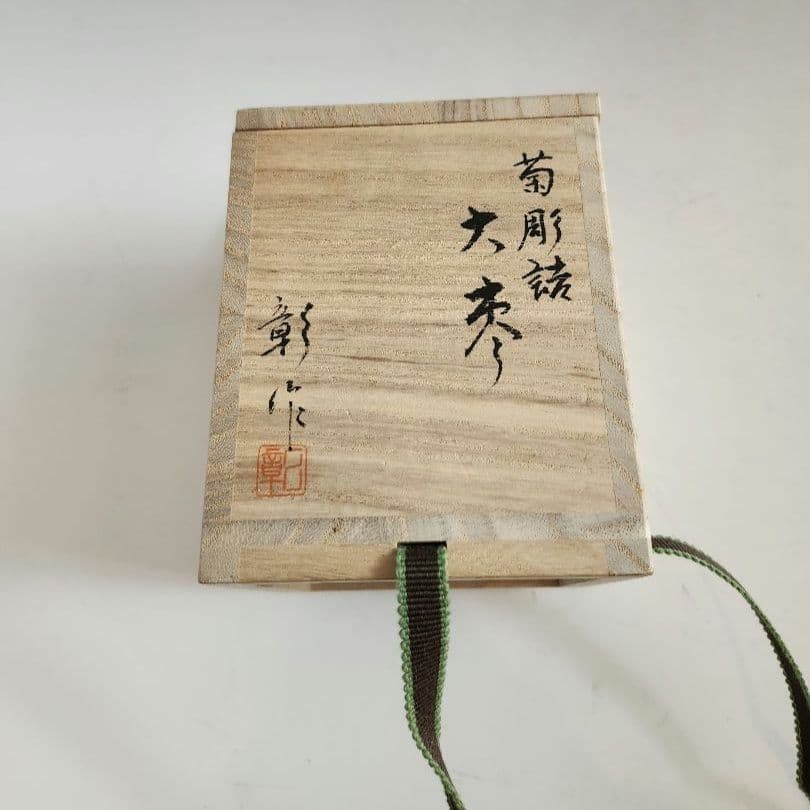 菊彫詰
大棗
彰作
彰